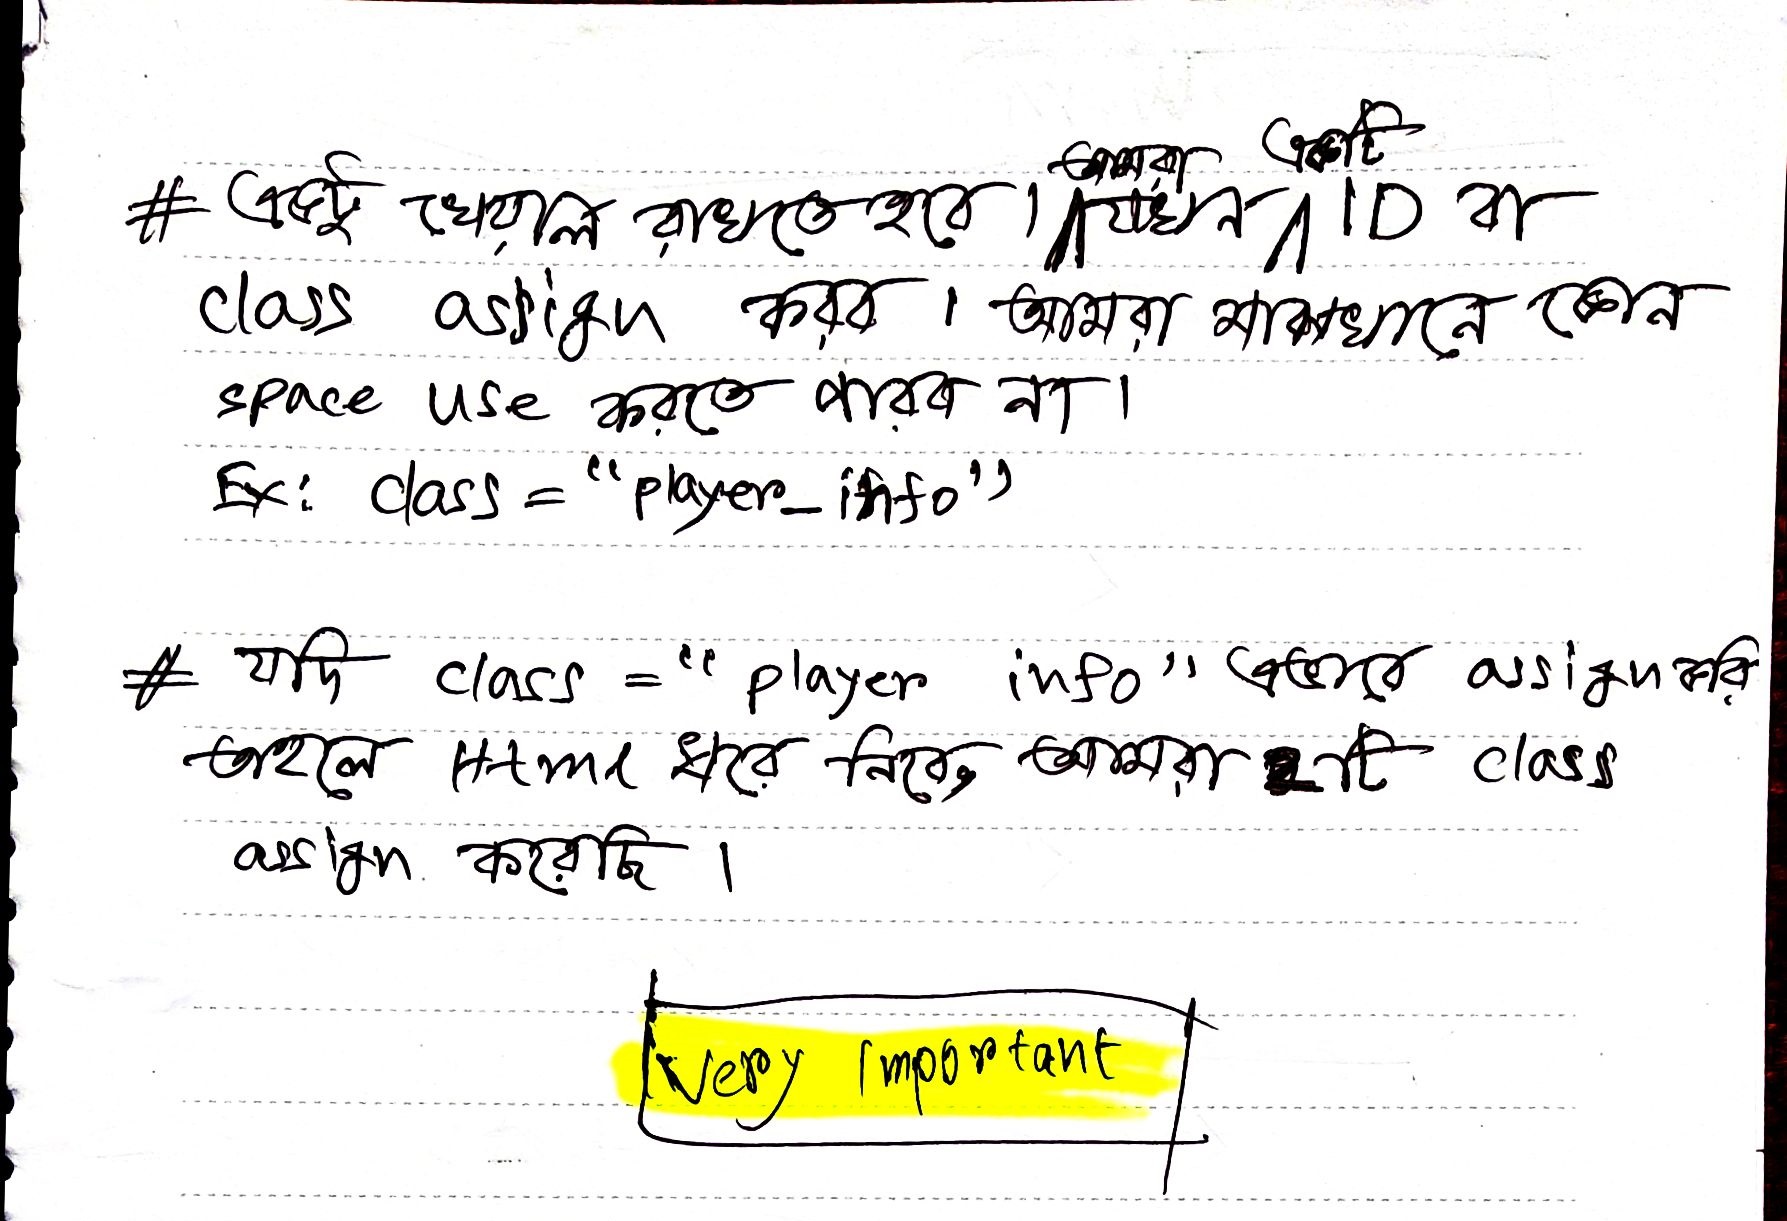 # একটু খেয়াল রাখতে হবে। আমরা যখন একটি ID বা
class assign করব। আমরা মাঝখানে কোন
space use করতে পারব না।
Ex: class = "player_info"
# যদি class = "player info" এভাবে assign করি
তাহলে Html ধরে নিবে, আমরা 2টি class
assign করেছি।
Very Important